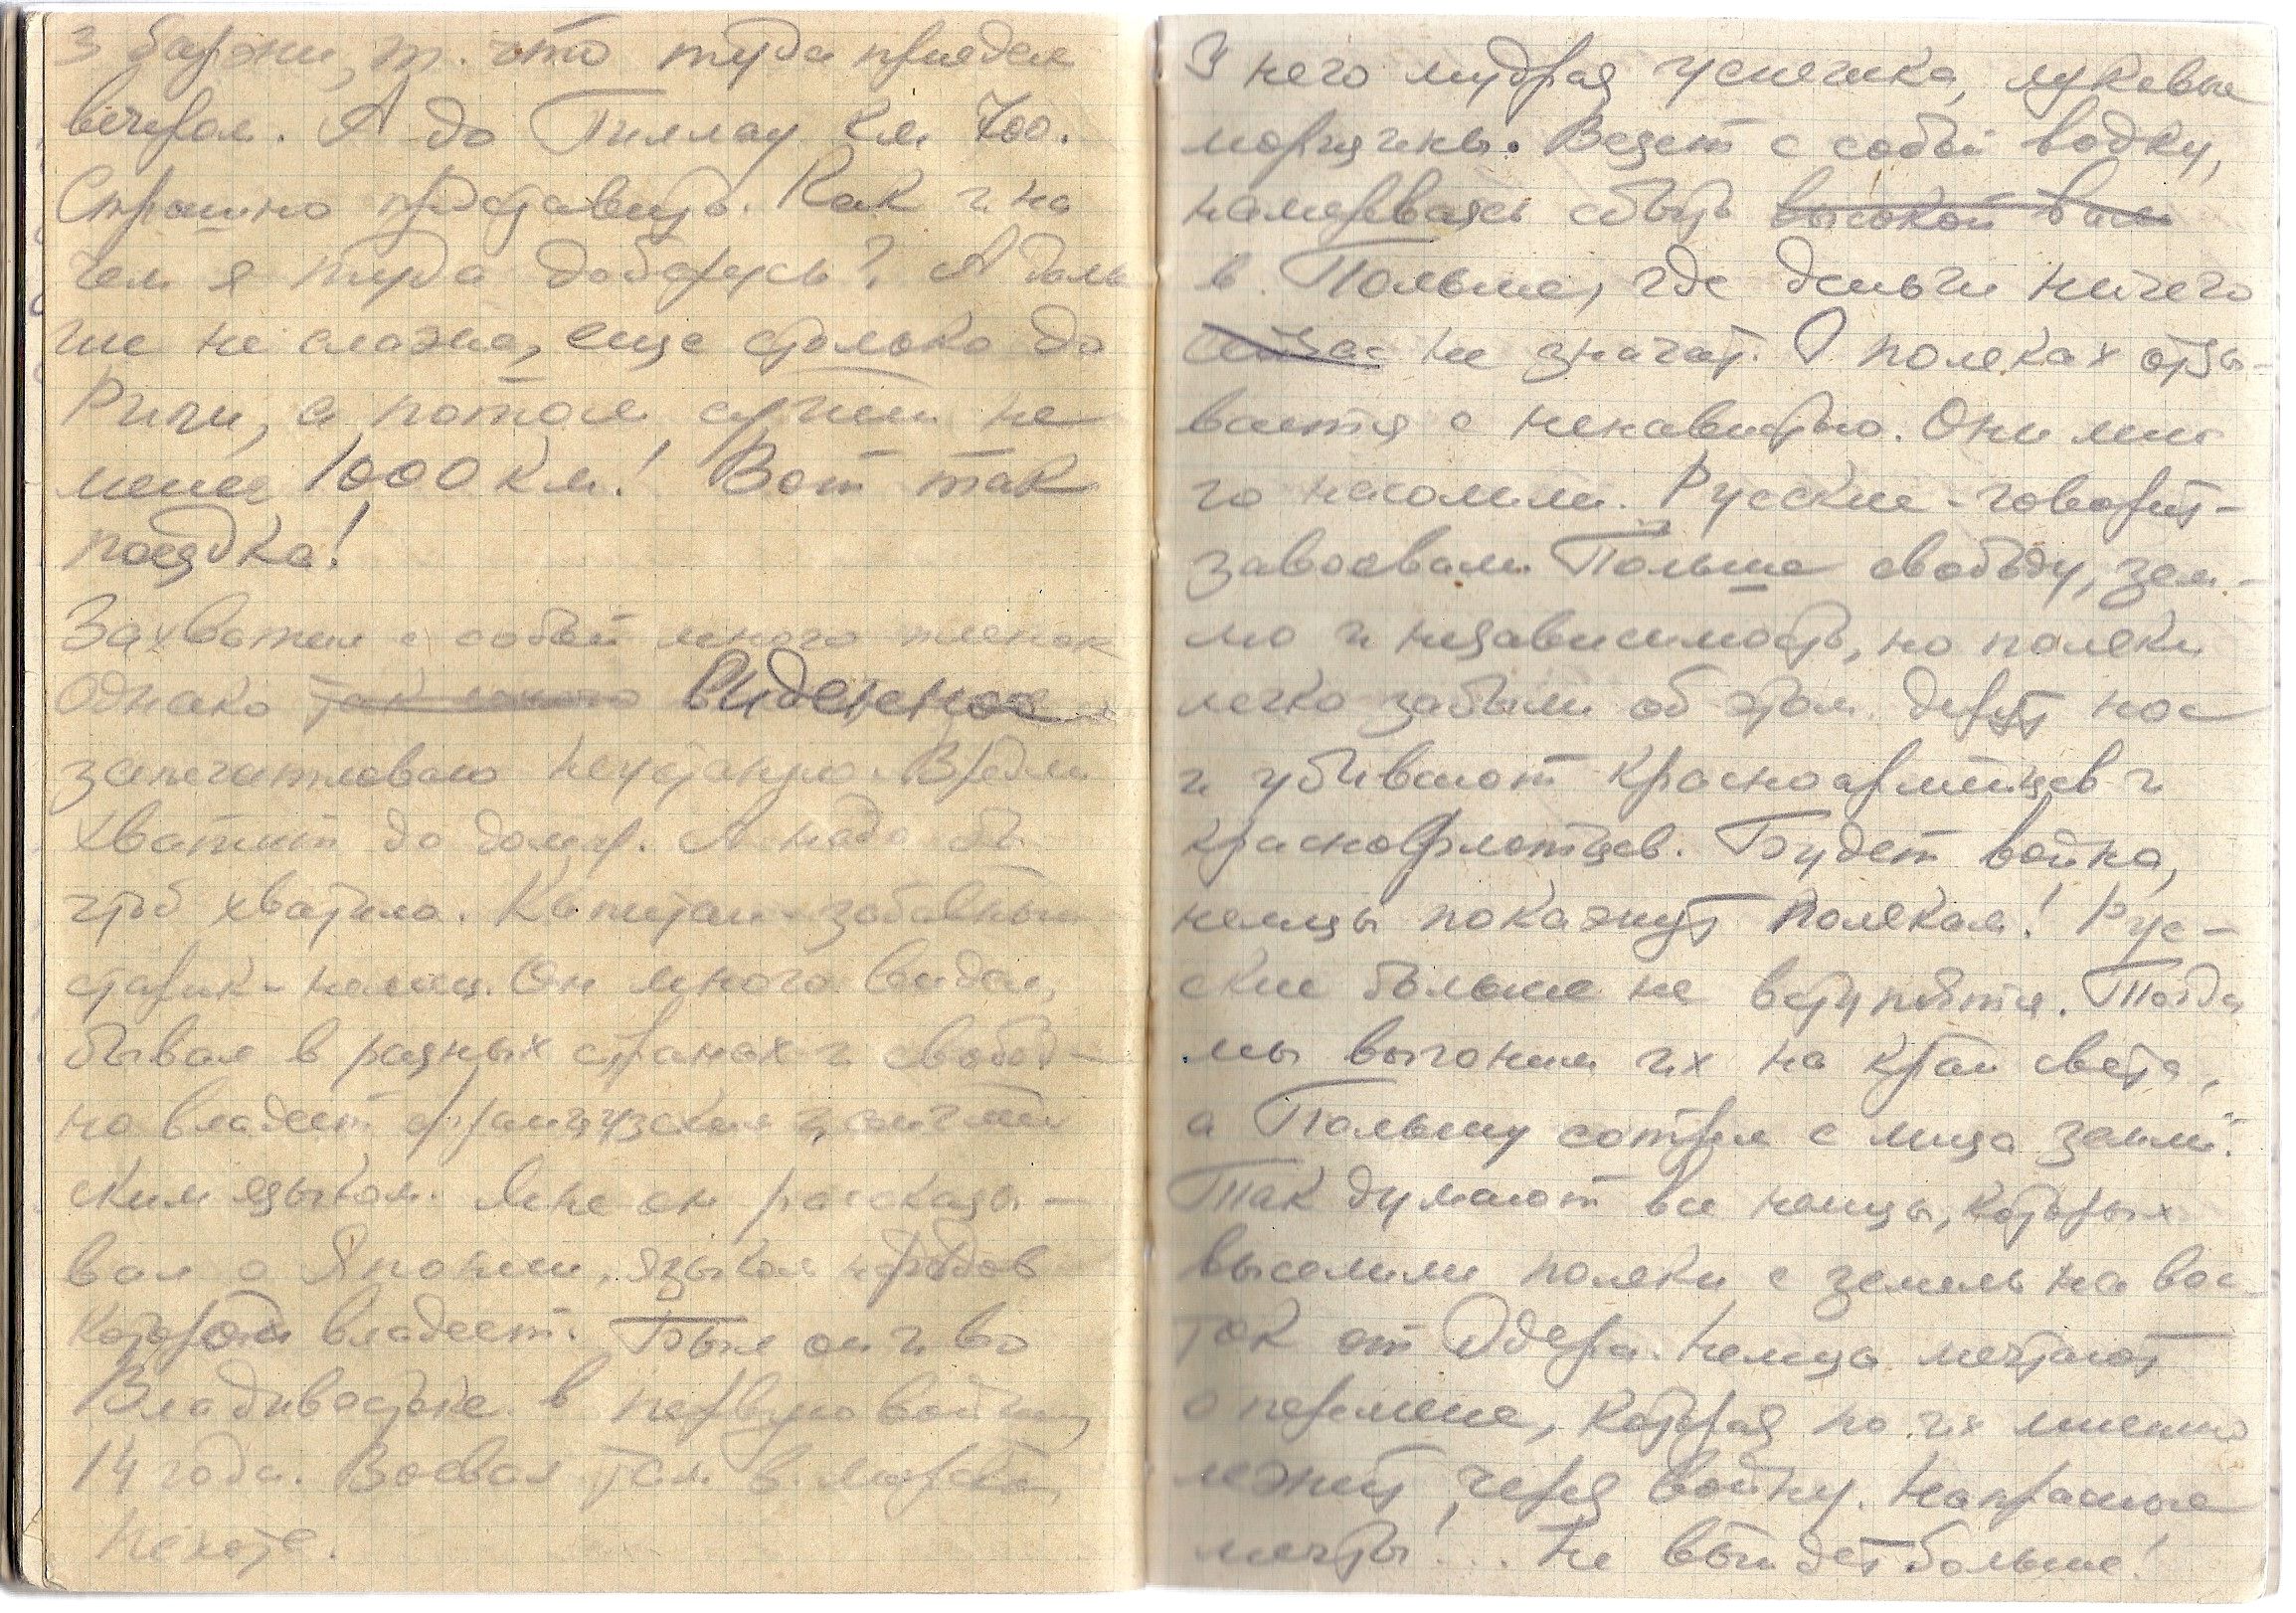 3 баржи, т. что туда приедем
вечером. А до Пиллау км 700.
Страшно представить. Как и на
чем я туда доберусь? А даль
ше не слаже, еще столько до
Риги, а потом сушей не
менее 1000 км! Вот так
поездка!
Захватил с собой много пленок
Однако так много виденное
запечатлеваю неустанно. Врядли
хватит до дому. А надо бы
чтоб хватило. Капитан - забавный
старик - немец. Он много видал,
бывал в разных странах и свобод-
но владеет французским и англий
ским языком. Мне он рассказы-
вал о Японии, языком народов
которой владеет. Был он и во
Владивостоке в первую войну
14 года. Воевал там в морской
пехоте.
У него мудрая усмешка, лукавые
морщинки. Везет с собой водку,
намереваясь сбыть
в Польше, где деньги ничего
сейчас не значат. О поляках отзы-
вается с ненавистью. Они мно
го насолили. Русские - говорит -
завоевали Польше свободу, зем-
лю и независимость, но поляки
легко забыли об этом. Дерут нос
и убивают красноармейцев и
краснофлотцев. Будет война,
немцы покажут полякам! Рус-
ские больше не вступятся. Тогда
мы выгоним их на край света,
а Польшу сотрем с лица земли".
Так думают все немцы, которых
выселили поляки с земель на вос-
ток от Одера. Немцы мечтают
о перемене, которая по их мнению
лежит через войну. Напрасные
мечты!... Не выйдет больше!